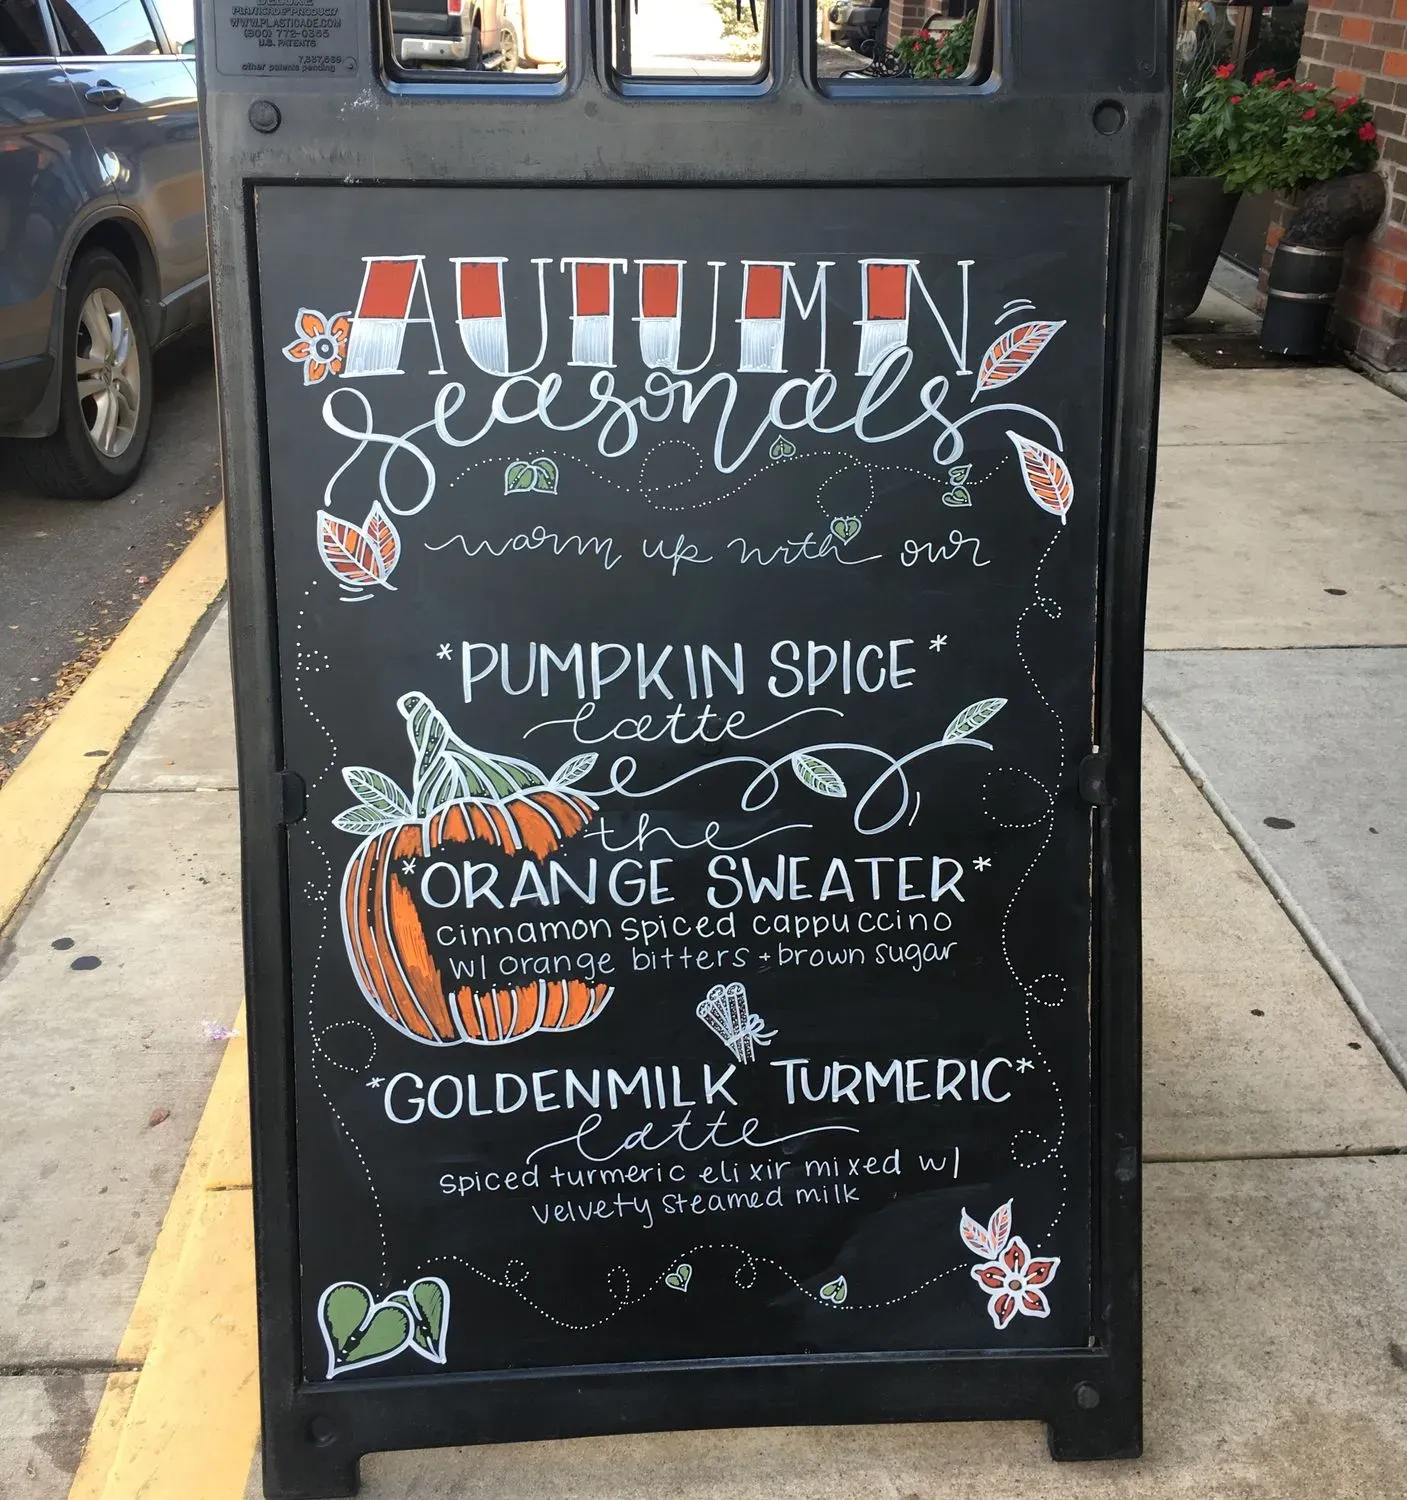 DELUXE
PLASTICADE PRODUCTS
WWW.PLASTICADE.COM
(800) 772-0355
U.S. PATENTS
7,337,569
other patents pending
AUTUMN
seasonals
warm up with our
*PUMPKIN SPICE*
latte
the
*ORANGE SWEATER*
cinnamon spiced cappuccino
w/ orange bitters + brown sugar
*GOLDENMILK TURMERIC*
latte
spiced turmeric elixir mixed w/
velvety steamed milk